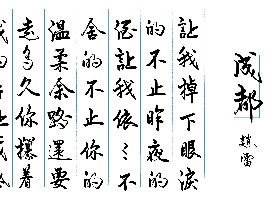 成都
趙雷
讓我掉下眼淚
的不止昨夜的
酒讓我依〻不
舍的不止你的
溫柔余路還要
走多久你攥着